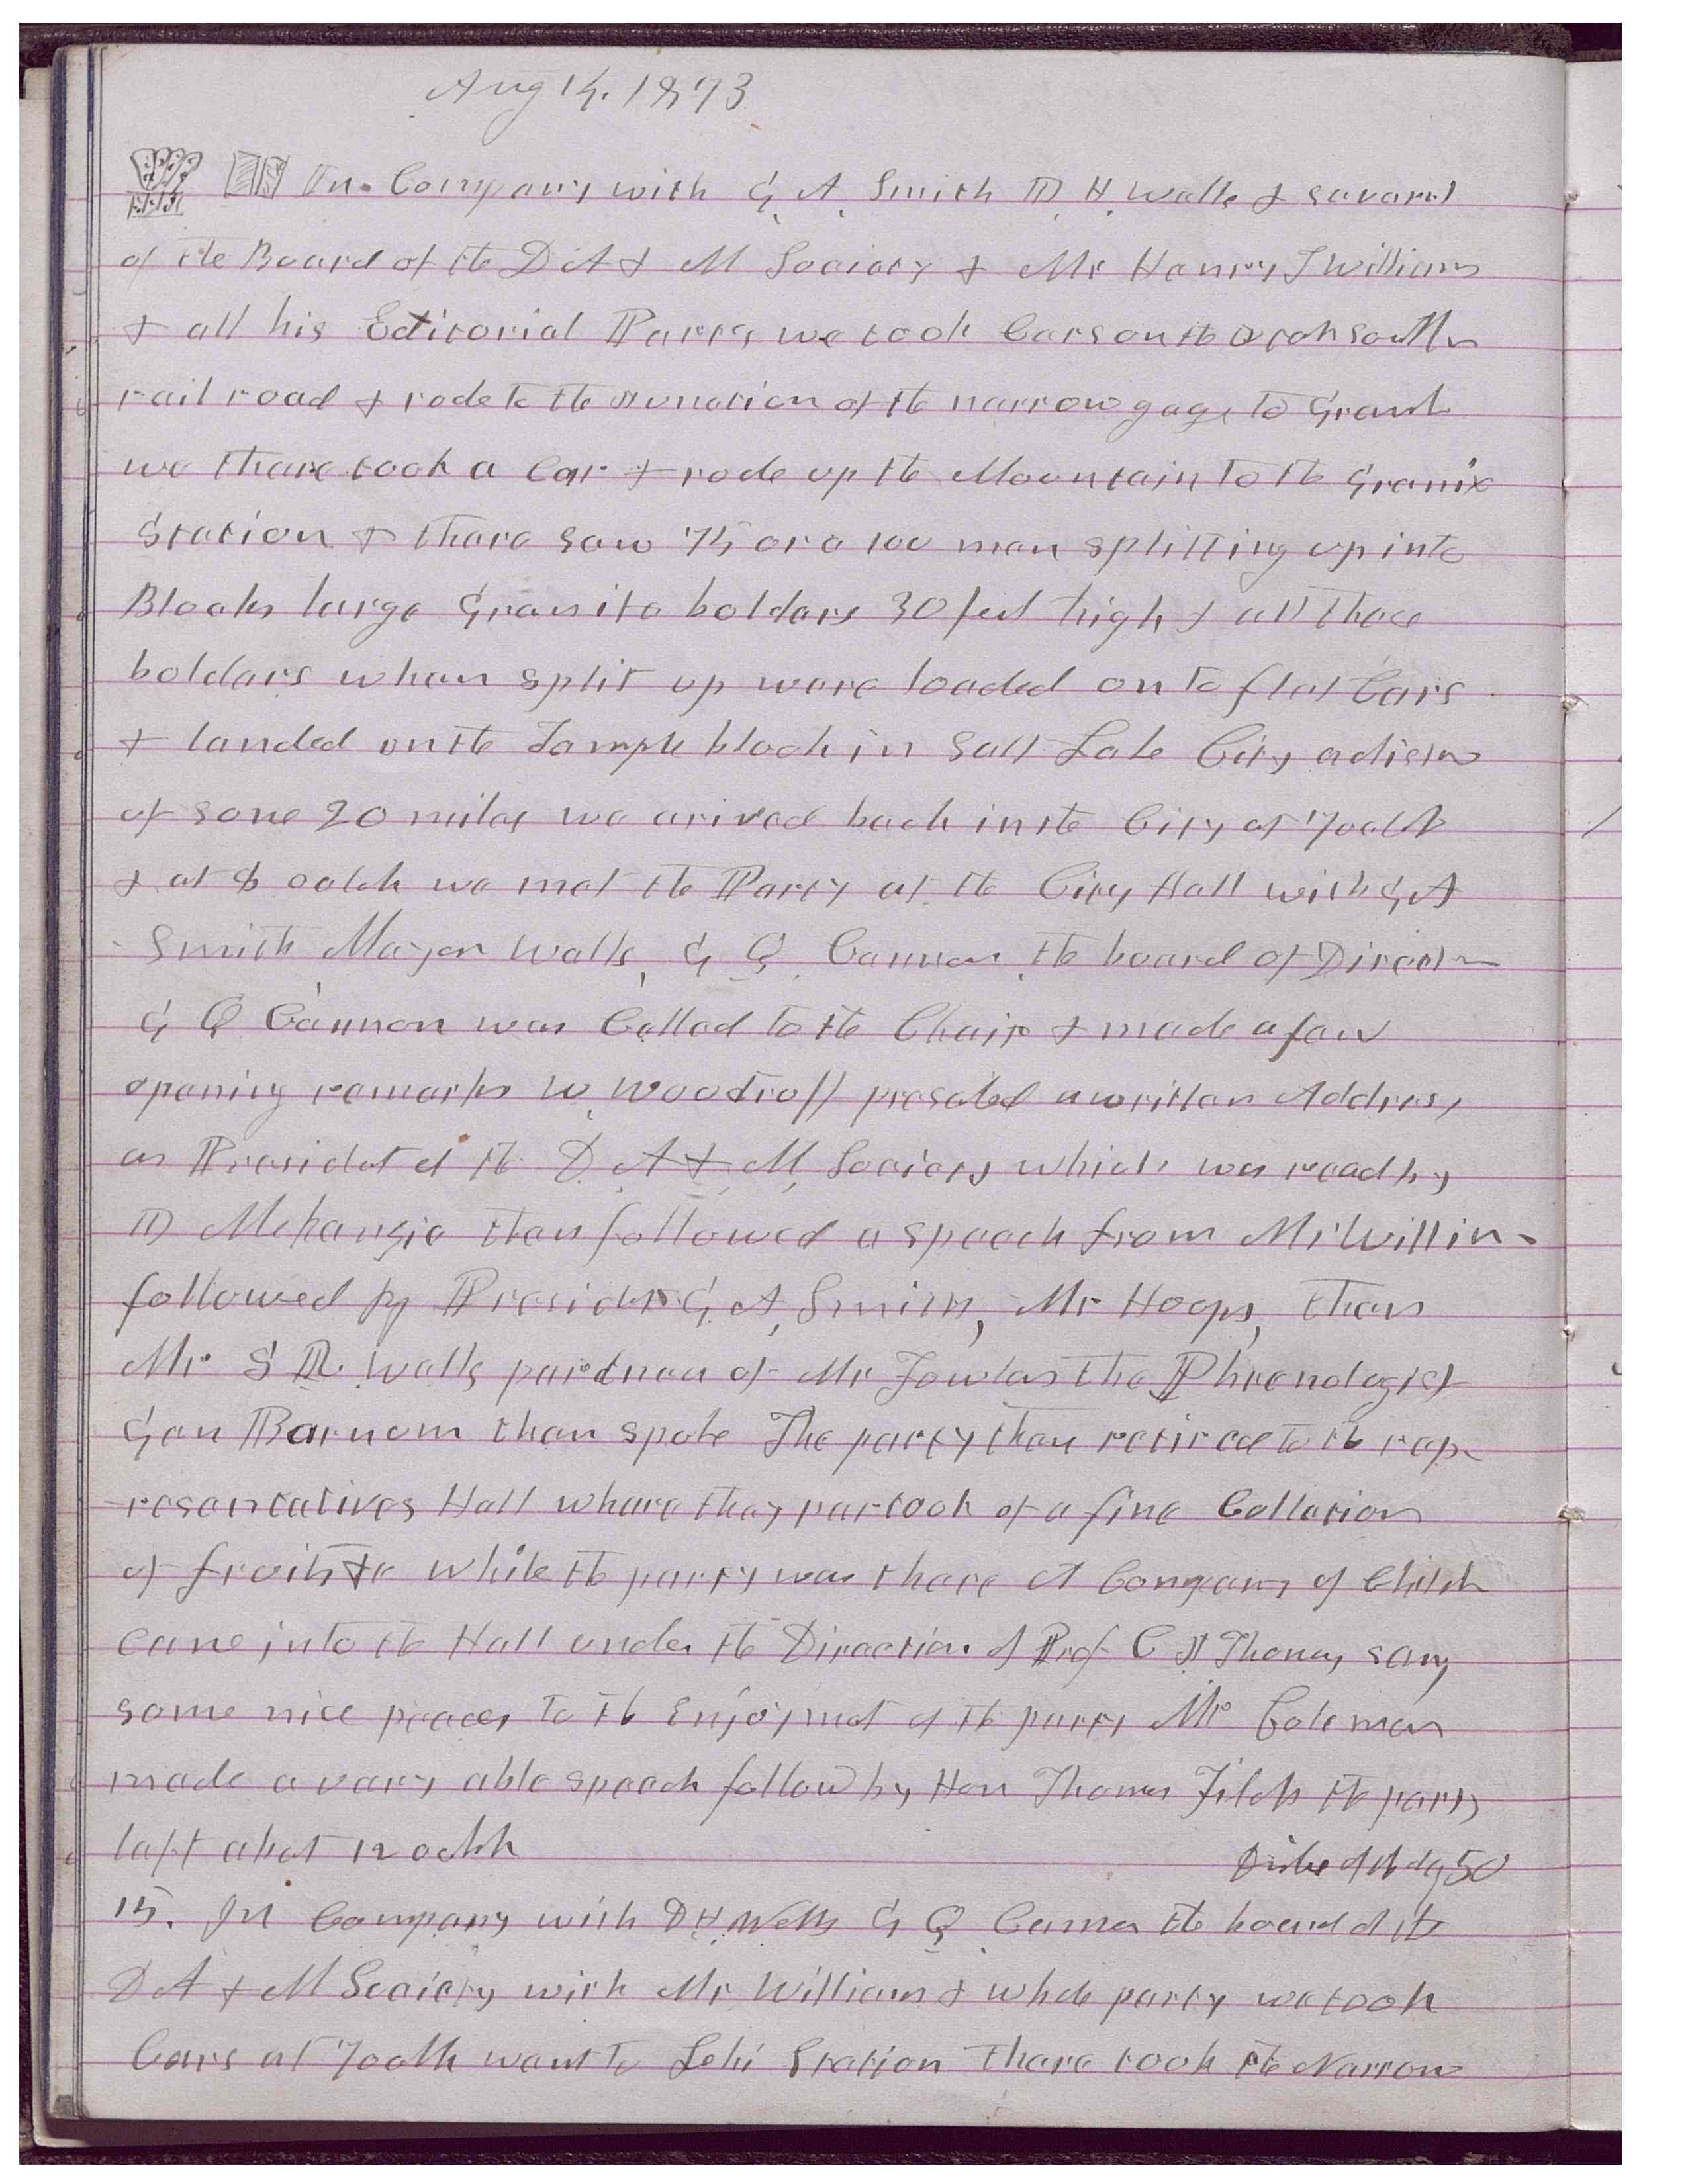 Aug 14. 1873
In Company with G. A. Smith D. H. Wells & several
of the Board of the D A & M Society & Mr Henry T Williams
& all his Editorial Party we took Cars on the Utah Southn
rail road & rode to the Junction of the narrow gage to Granit
we there took a Car & rode up the Mountain to the Granix
Station & there saw 75 or a 100 men splitting up into
Blocks large Granite bolders 30 feet high & all those
bolders when split up were loaded on to flat Cars
& landed on the Temple block in Salt Lake City a distn
of some 20 miles we arived back in the City at 7 oclk
& at 8 oclok we met the Party at the City Hall with G A
Smith Mayor Wells, G Q. Cannon, the board of Directn
G Q Cannon was Called to the Chair & made a few
opening remarks W. Woodruff presented a written Address,
as President of the D. A & M, Society which was read by
D Mckensie then followed a speech from Mr Willim
followed by President G. A, Smith, Mr Hoops, then
Mr S R. Wells partner of Mr Fowler the Phrenologist
Gen Barnum then spoke The party then retired to the rep-
-resentatives Hall where they partook of a fine Collation
of fruits &c While the party was there A Company of Childn
came into the Hall under the Direction of Prof C J Thomas, sang
some nice peaces to the Enjoymet of the party Mr Coleman
made a very able speech follow by Hon Thomas Fitch the party
left about 12 oclk
Distance of the day 50
15. In Company with D H. Wells G Q. Cannon the board of the
D A & M Society with Mr Williams & whole party we took
Cars at 7 oclk went to Lehi Station there took the Narrow